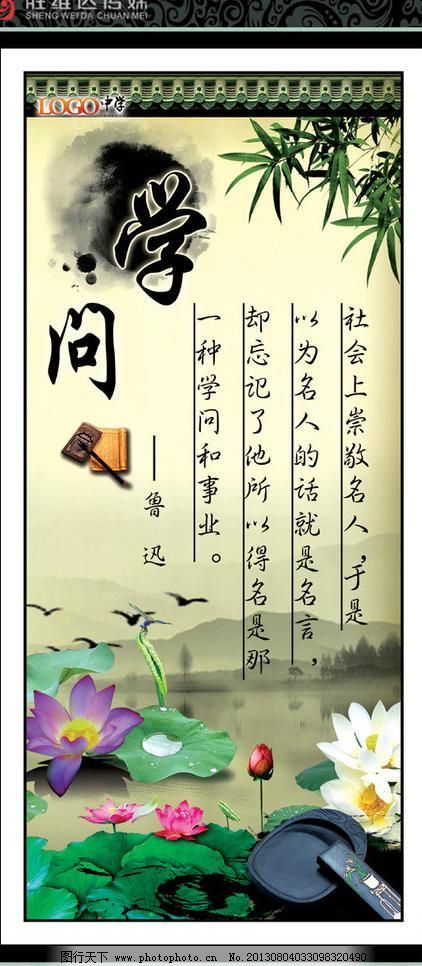 胜维达传媒
SHENG WEIDA CHUAN MEI
LOGO中学
学问
社会上崇敬名人，于是
以为名人的话就是名言，
却忘记了他所以得名是那
一种学问和事业。
——鲁迅
图行天下 www.photophoto.cn No.20130804033098320490